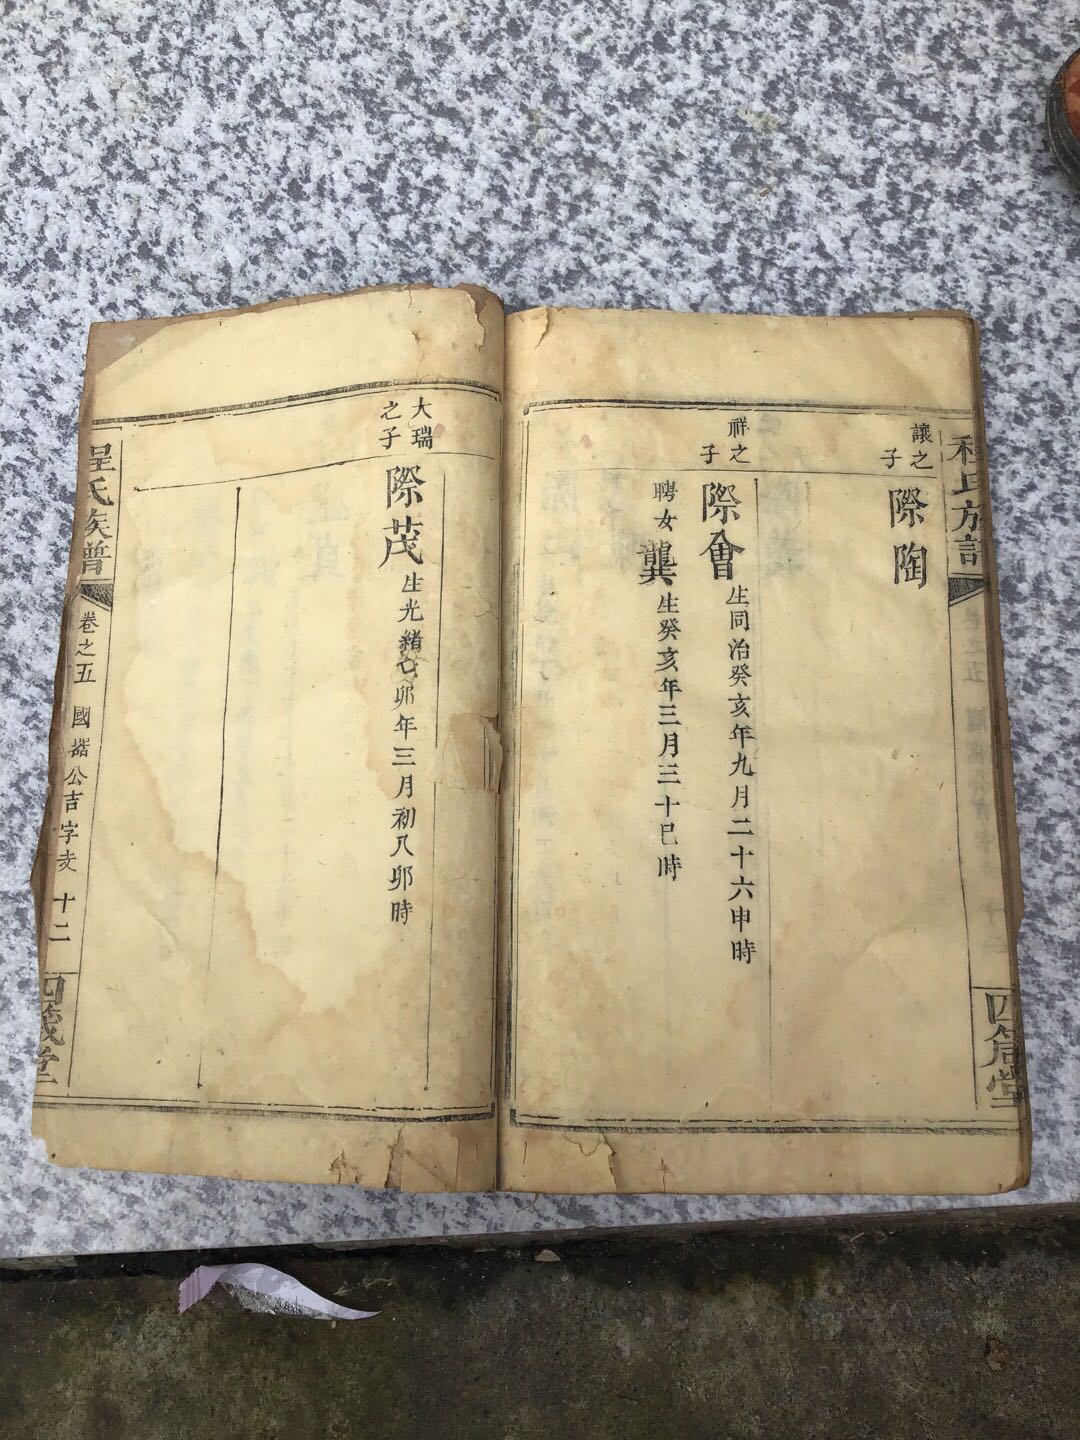 讓之子
際陶
祥之子
際會生同治癸亥年九月二十六申時
聘女龔生癸亥年三月三十巳時
大瑞之子
際茂生光緒乙卯年三月初八卯時
程氏族譜
卷之五
國器公吉字支
十二
四箴堂
程氏族譜
四箴堂